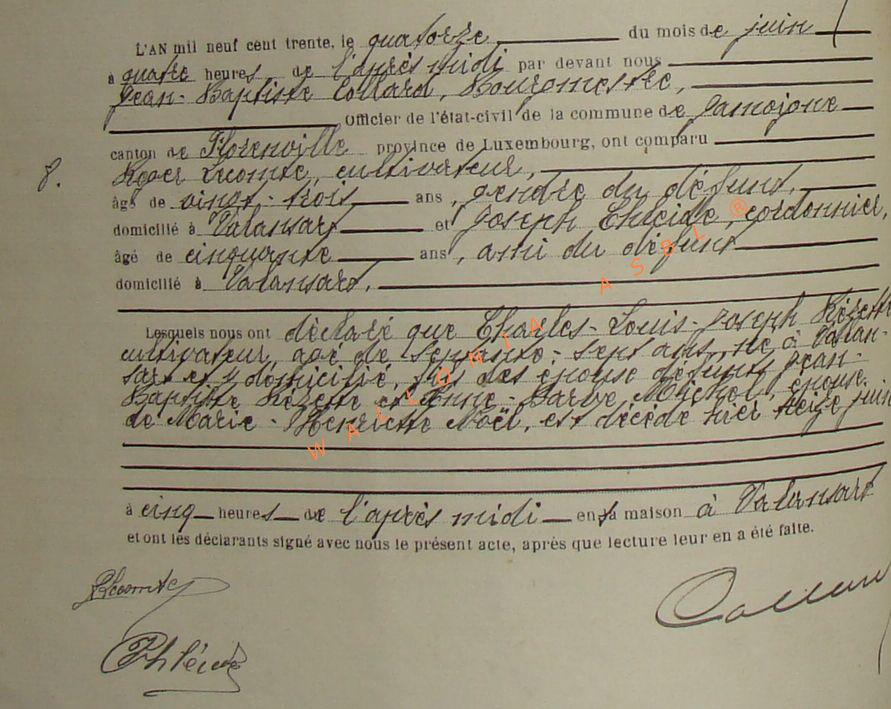 L'AN mil neuf cent trente, le quatorze du mois de juin
à quatre heures de l'après midi par devant nous
Jean-Baptiste Collard, Bourgmestre,
Officier de l'état-civil de la commune de Jamoigne
canton de Florenville province de Luxembourg, ont comparu
8.
Roger Lecomte, cultivateur,
âgé de vingt-trois ans, gendre du défunt,
domicilié à Valansart et Joseph cordonnier,
âgé de cinquante ans, ami du défunt
domicilié à Valansart.
Lesquels nous ont déclaré que Charles-Louis-Joseph
cultivateur, âgé de septante-sept ans, né à Valan-
sart et y domicilié, fils des époux défunts Jean-
Baptiste et Anne-Barbe Michel, époux
de Marie-Henriette Noël, est décédé hier treize juin
à cinq heures de l'après midi en sa maison à Valansart
et ont les déclarants signé avec nous le présent acte, après que lecture leur en a été faite.
RLecomte
Collard
WALLONIA ASBL ®